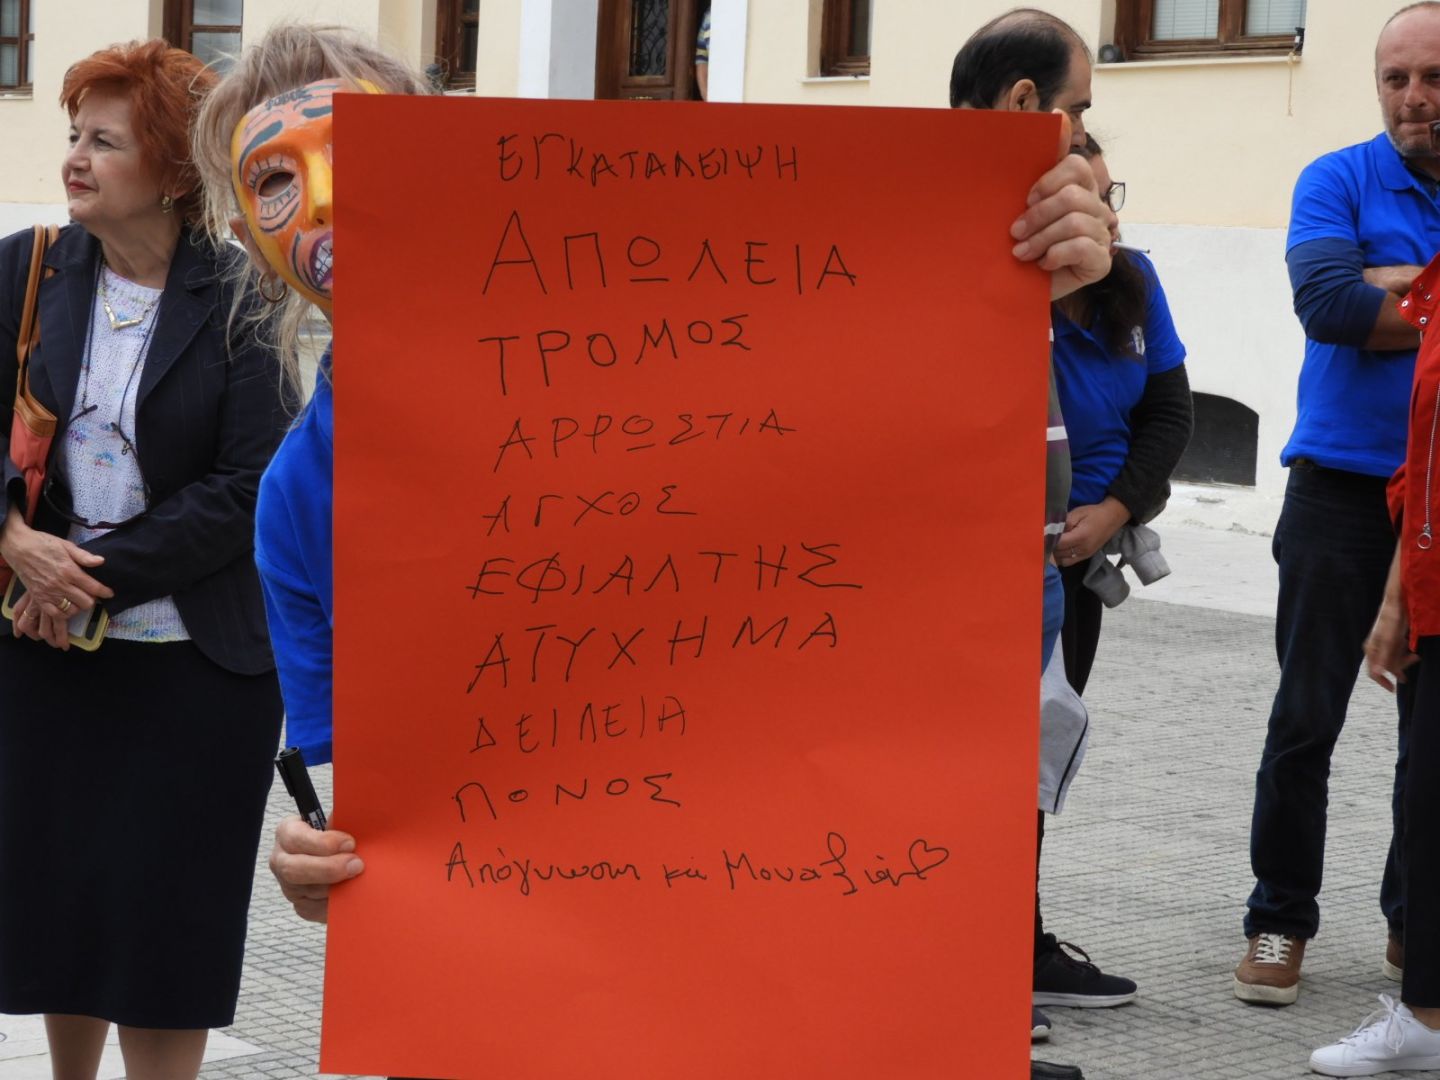 ΕΓΚΑΤΑΛΕΙΨΗ
ΑΠΩΛΕΙΑ
ΤΡΟΜΟΣ
ΑΡΡΩΣΤΙΑ
ΑΓΧΟΣ
ΕΦΙΑΛΤΗΣ
ΑΤΥΧΗΜΑ
ΔΕΙΛΕΙΑ
ΠΟΝΟΣ
Απόγνωση και Μοναξιά